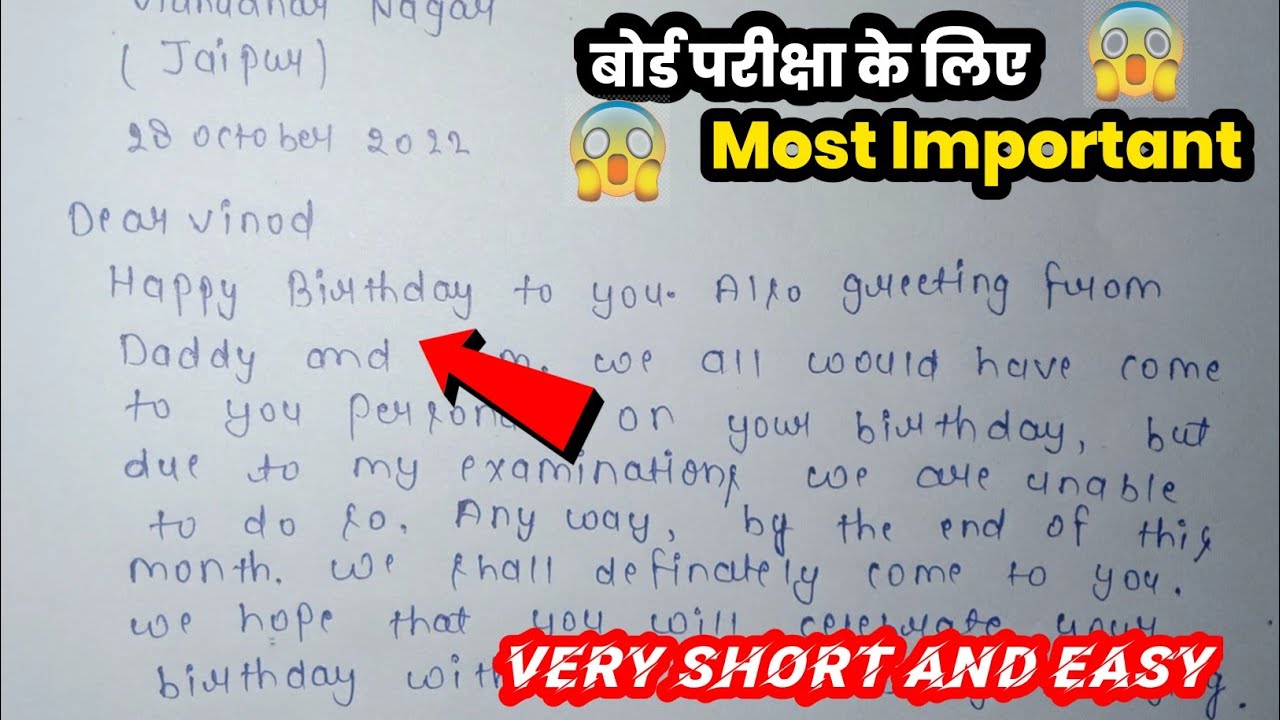 Nagar
(Jaipur)
28 october 2022
बोर्ड परीक्षा के लिए
Most Important
Dear vinod
Happy Birthday to you. Also greeting from
Daddy and we all would have come
to you on your birthday, but
due to my examinations we are unable
to do so. Any way, by the end of this
month. we shall definately come to you.
we hope that you will celebrate your
birthday
VERY SHORT AND EASY